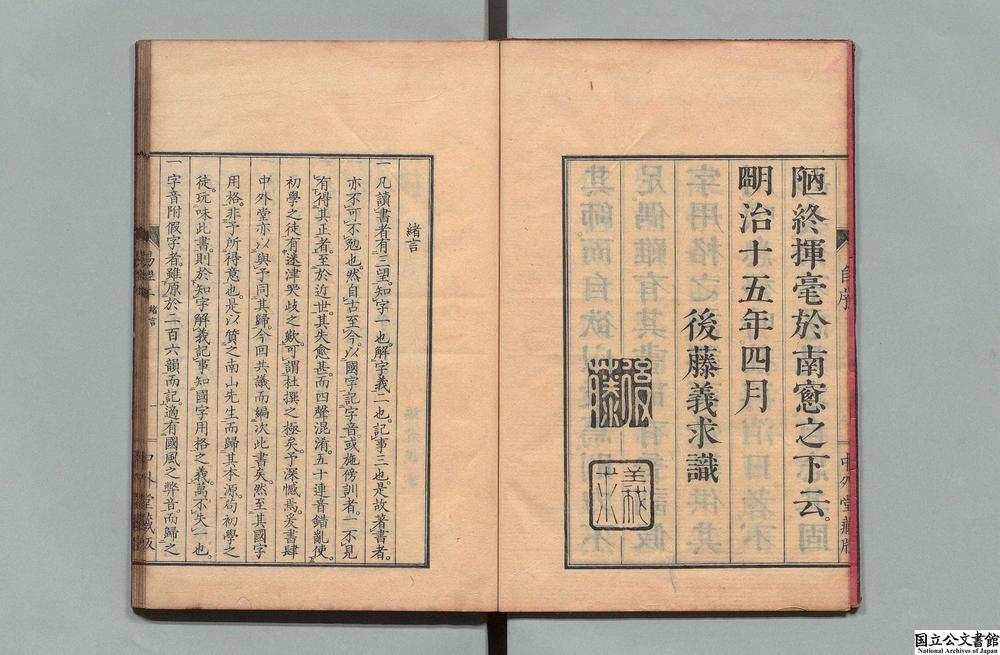 陋終揮毫於南窓之下云。
明治十五年四月
後藤義求識
後
藤
義
求
自序
中外堂藏版
緒言
一凡讀書者有三望。知字一也。解字義二也。記事三也。是故著書者。
亦不可不勉也。然自古至今。以國字記字音。或施傍訓者。一不見
有得其正者。至於近世。其失愈甚。而四聲混淆。五十連音錯亂。使
初學之徒有迷津哭歧之歎。可謂杜撰之極矣。予深憾焉。爰書肆
中外堂亦以與予同其歸。今回共議而編次此書矣。然至其國字
用格。非予所得意也。是以質之南山先生而歸其本源。苟初學之
徒。玩味此書。則於知字解義記事。知國字用格之義。萬不失一也。
一字音附假字者。雖原於二百六韻而記。適有國風之弊音而歸之
緒言
中外堂藏版
国立公文書館
National Archives of Japan